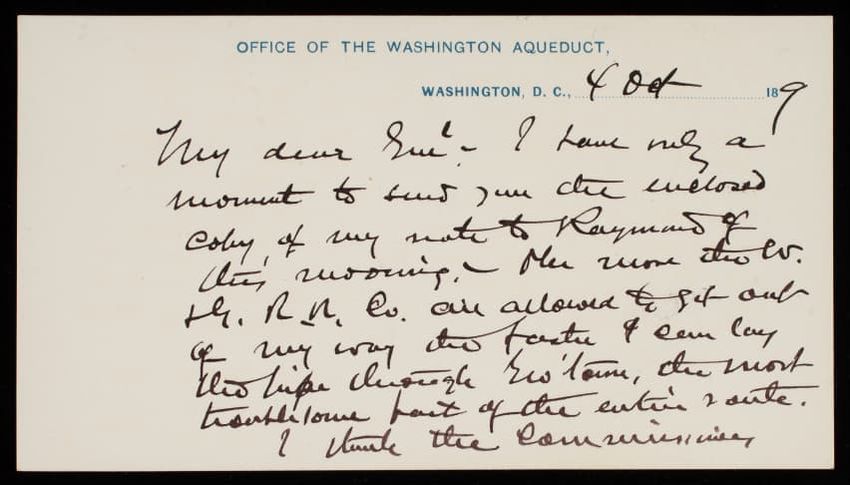 OFFICE OF THE WASHINGTON AQUEDUCT,
WASHINGTON, D. C., 4 Oct 189
My dear Genl - I have only a
moment to send you the enclosed
copy of my note to Raymond of
this morning. - The more the W.
& G. R. R. Co. are allowed to get out
of my way the faster I can lay
the pipe through Geo'town, the most
troublesome part of the entire route.
I think the Commissioners